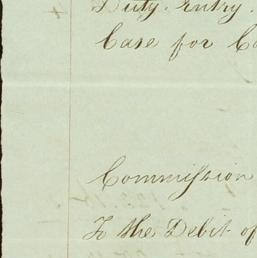 Duty. Entry.
Case for Ca
Commission
To the Debit of